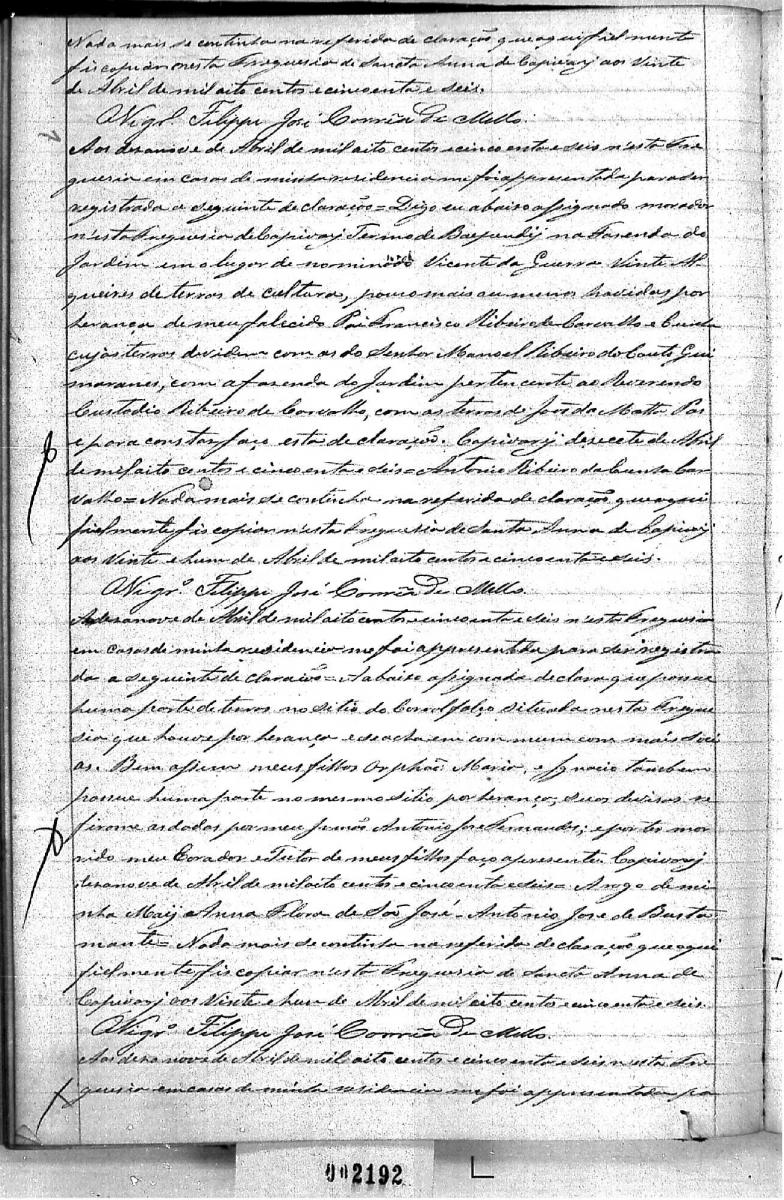 Nada mais se continha na referida declaração, que aqui fielmente
fis copiar nesta Freguesia de Sancta Anna de Capivary aos Vinte
de Abril de mil oito centos e cincoenta e seis.
O Vigrº. Filippe José Corrêa De Mello.
Aos desanove de Abril de mil oito centos e cincoenta e seis n'esta Fre
guesia em casas de minha residencia me foi appresentada para ser
registrada a seguinte declaração = Digo eu abaixo assignado morador
n'esta Freguesia de Capivary Termo de Baependij na Fasenda do
Jardim em o lugar denominado Vicente da Guerra Vinte Al
queires de terras de cultura, pouco mais ou menos havidas por
herança de meu falecido Pai Francisco Ribeiro de Carvalho e
cujas terras dividem com as do Senhor Manoel Ribeiro do Couto Gui
maranes, com a fazenda do Jardim pertencente ao Reverendo
Custodio Ribeiro de Carvalho, com as terras de João da Matta
e para constar faço esta declaração. Capivary desecete de Abril
de mil oito centos e cincoenta e seis = Antonio Ribeiro da Car
valho = Nada mais se continha na referida declaração, que aqui
fielmente fis copiar n'esta Freguesia de Santa Anna de Capivary
aos Vinte e hum de Abril de mil oito centos e cincoenta e seis.
O Vigrº. Filippe José Corrêa De Mello.
desanove de Abril de mil oito centos e cincoenta e seis n'esta Freguesia
em casas de minha residencia me foi appresentada para ser registra
da a seguinte declaração = A abaixo assignada declara que possue
huma parte de terras no sitio do situada nesta Fregue
sia que houve por herança e se acha em commum com mais Soci
os. Bem assim meus filhos Orphãos Maria, e Ignacio tambem
possue huma parte no mesmo sitio por herança, suas divisas re
firome as dadas por meu Irmão Antonio José Fernandes; e por ter mor
rido meu Corador e Tutor de meus filhos faço a presente. Capivary
desanove de Abril de mil oito centos e cincoenta e seis = A rogo de mi
nha Maij Anna Flora de São José - Antonio José de Busta
mante = Nada mais se continha na referida declaração que aqui
fielmente fis copiar n'esta Freguesia de Sancta Anna de
Capivary aos Vinte e hum de Abril de mil oito centos e cincoenta e seis.
O Vigrº. Filippe José Corrêa De Mello.
Aos desanove de Abril de mil oito centos e cincoenta e seis n'esta Fre
guesia em casas de minha residencia me foi appresentada pa
002192